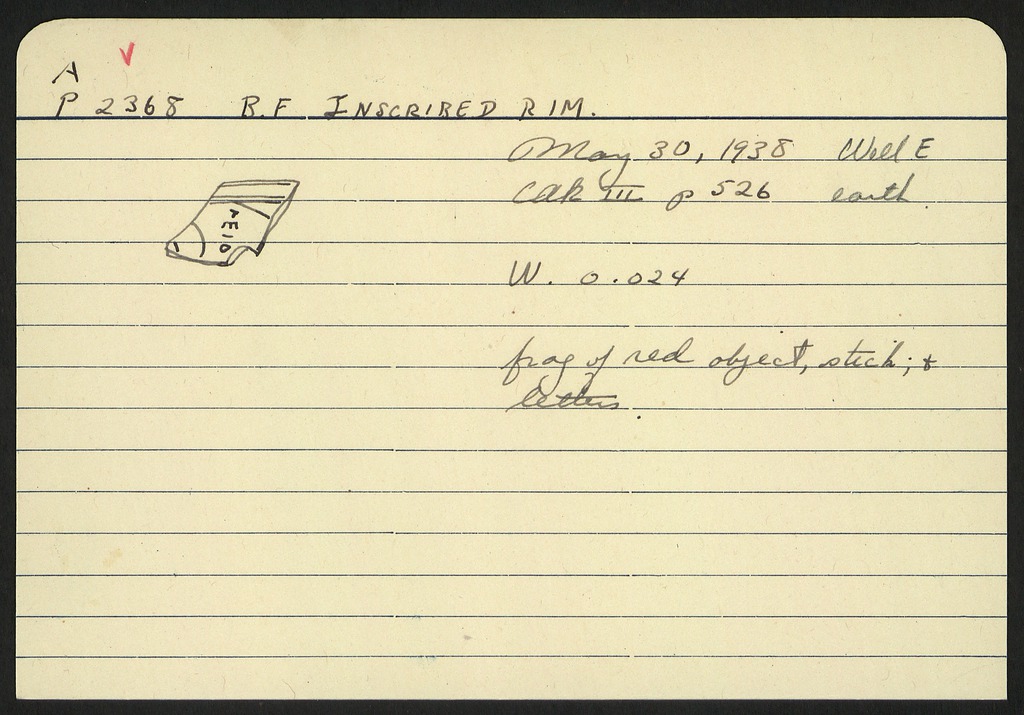 A
P 2368 B.F INSCRIBED RIM.
May 30, 1938 Well E
CAK III p 526 earth
W. 0.024
frag of red object, stick; &
letters.